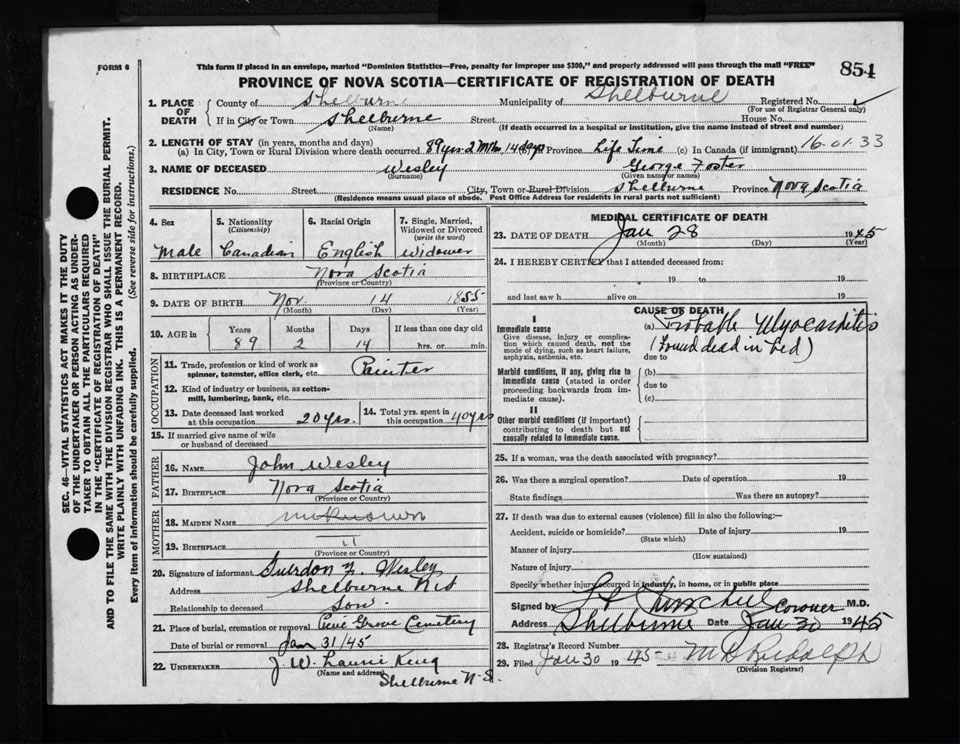 FORM 6
This form if placed in an envelope, marked "Dominion Statistics—Free, penalty for improper use $300," and properly addressed will pass through the mail "FREE"
854
PROVINCE OF NOVA SCOTIA—CERTIFICATE OF REGISTRATION OF DEATH
1. PLACE OF DEATH County of Shelburne Municipality of Shelburne Registered No.
(For use of Registrar General only)
If in City or Town Shelburne Street House No.
(Name) (If death occurred in a hospital or institution, give the name instead of street and number)
2. LENGTH OF STAY (in years, months and days)
(a) In City, Town or Rural Division where death occurred 89 yrs 2 Mths, 14 days (b) in Province Life Time (c) In Canada (if immigrant) 16-01-33
3. NAME OF DECEASED Wesley George Foster
(Surname) (Given name or names)
RESIDENCE No. Street City, Town or Rural Division Shelburne Province Nova Scotia
(Residence means usual place of abode. Post Office Address for residents in rural parts not sufficient)
SEC. 46—VITAL STATISTICS ACT MAKES IT THE DUTY
OF THE UNDERTAKER OR PERSON ACTING AS UNDER-
TAKER TO OBTAIN ALL THE PARTICULARS REQUIRED
IN THE "CERTIFICATE OF REGISTRATION OF DEATH"
AND TO FILE THE SAME WITH THE DIVISION REGISTRAR WHO SHALL ISSUE THE BURIAL PERMIT.
WRITE PLAINLY WITH UNFADING INK. THIS IS A PERMANENT RECORD.
Every item of information should be carefully supplied. (See reverse side for instructions.)
4. Sex Male
5. Nationality (Citizenship) Canadian
6. Racial Origin English
7. Single, Married, Widowed or Divorced (write the word) Widower
8. BIRTHPLACE Nova Scotia
(Province or Country)
9. DATE OF BIRTH Nov. 14 1855
(Month) (Day) (Year)
10. AGE in Years Months Days If less than one day old
89 2 14 hrs. or min.
OCCUPATION
11. Trade, profession or kind of work as spinner, teamster, office clerk, etc. Painter
12. Kind of industry or business, as cotton-mill, lumbering, bank, etc.
13. Date deceased last worked at this occupation 20 yrs. 14. Total yrs. spent in this occupation 40 yrs
15. If married give name of wife or husband of deceased
FATHER
16. NAME John Wesley
17. BIRTHPLACE Nova Scotia
(Province or Country)
MOTHER
18. MAIDEN NAME unknown
19. BIRTHPLACE "
(Province or Country)
20. Signature of informant Wesley
Address Shelburne N.S
Relationship to deceased Son
21. Place of burial, cremation or removal Pine Grove Cemetery
Date of burial or removal Jan 31/45
22. UNDERTAKER J. W.
(Name and address) Shelburne N.S.
MEDICAL CERTIFICATE OF DEATH
23. DATE OF DEATH Jan 28 1945
(Month) (Day) (Year)
24. I HEREBY CERTIFY that I attended deceased from:
19 to 19
and last saw h alive on 19
CAUSE OF DEATH
I
Immediate cause (a) Probable Myocarditis
Give disease, injury or complication which caused death, not the mode of dying, such as heart failure, asphyxia, asthenia, etc. (found dead in bed)
due to
Morbid conditions, if any, giving rise to immediate cause (stated in order proceeding backwards from immediate cause). (b)
due to
(c)
II
Other morbid conditions (if important) contributing to death but not causally related to immediate cause.
25. If a woman, was the death associated with pregnancy?
26. Was there a surgical operation? Date of operation 19
State findings Was there an autopsy?
27. If death was due to external causes (violence) fill in also the following:—
Accident, suicide or homicide? Date of injury 19
(State which)
Manner of injury
(How sustained)
Nature of injury
Specify whether injury occurred in industry, in home, or in public place
Signed by Coroner M.D.
Address Shelburne Date Jan 30 1945
28. Registrar's Record Number
29. Filed Jan 30 1945 Rudolph
(Division Registrar)